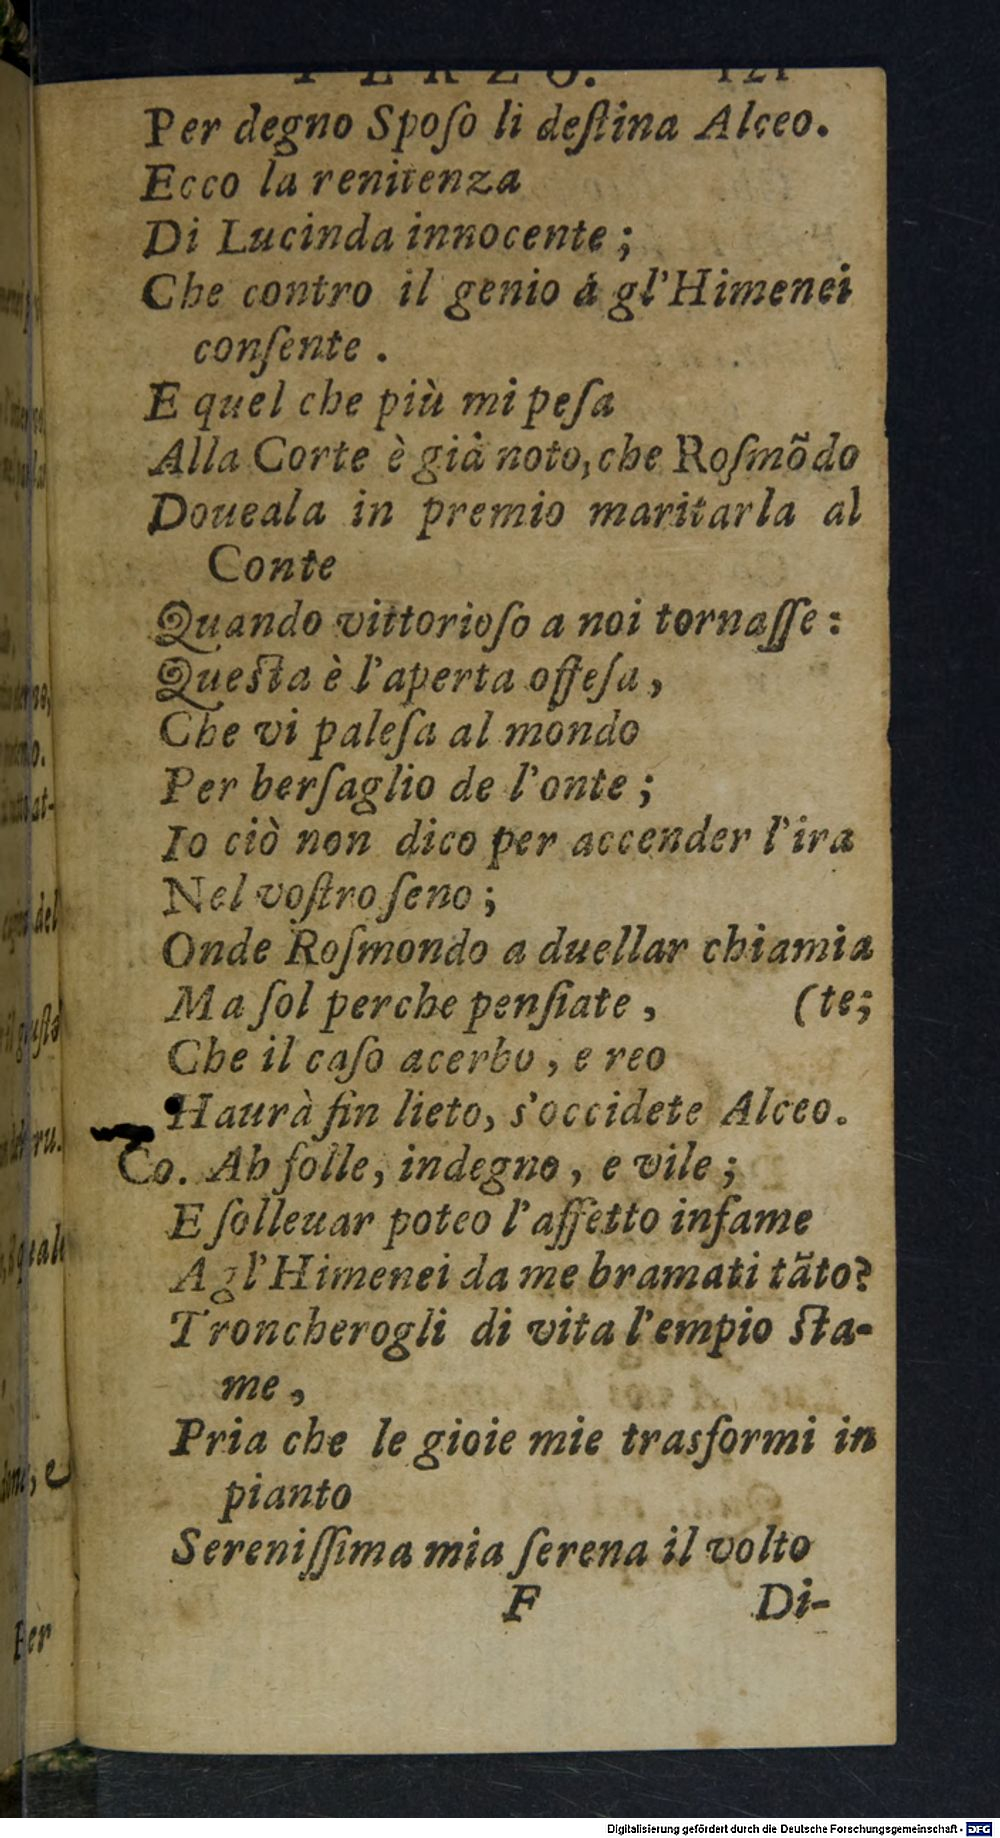 TERZO. 121
Per degno Spoſo li deſtina Alceo.
Ecco la renitenza
Di Lucinda innocente;
Che contro il genio à gl'Himenei
conſente.
E quel che più mi peſa
Alla Corte è già noto, che Roſmõdo
Doueala in premio maritarla al
Conte
Quando vittorioſo a noi tornaſſe:
Queſta è l'aperta offeſa,
Che vi paleſa al mondo
Per berſaglio de l'onte;
Io ciò non dico per accender l'ira
Nel voſtro ſeno;
Onde Roſmondo a duellar chiamia
Ma ſol perche penſiate, (te;
Che il caſo acerbo, e reo
Haurà fin lieto, s'occidete Alceo.
Co. Ah folle, indegno, e vile;
E ſolleuar poteo l'affetto infame
A gl'Himenei da me bramati tãto?
Troncherogli di vita l'empio ſta-
me,
Pria che le gioie mie trasformi in
pianto
Sereniſſima mia ſerena il volto
F Di-
Digitalisierung gefördert durch die Deutsche Forschungsgemeinschaft - DFG